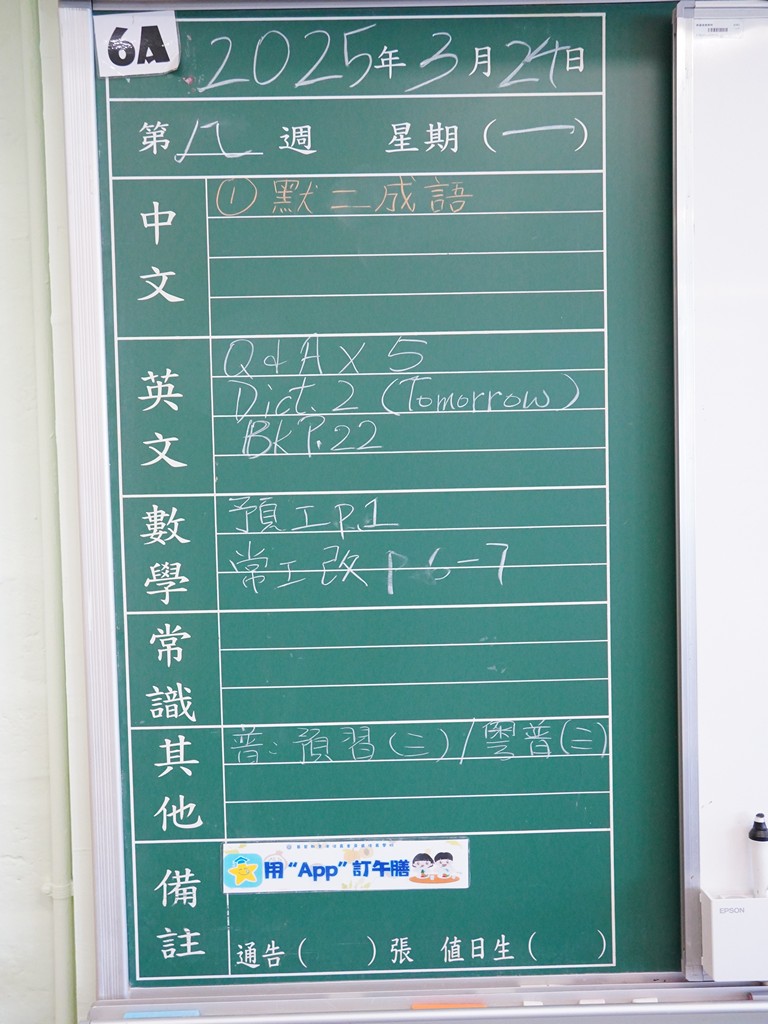 6A
2025年3月24日
第 週 星期(一)
中文
①默二成語
英文
Q & A x 5
Dict. 2 (Tomorrow)
BK P.22
數學
預工 P.1
常工改 P 6-7
常識
其他
普:預習(三)/粵普(三)
備註
用“App”訂午膳
通告( )張 值日生( )
EPSON